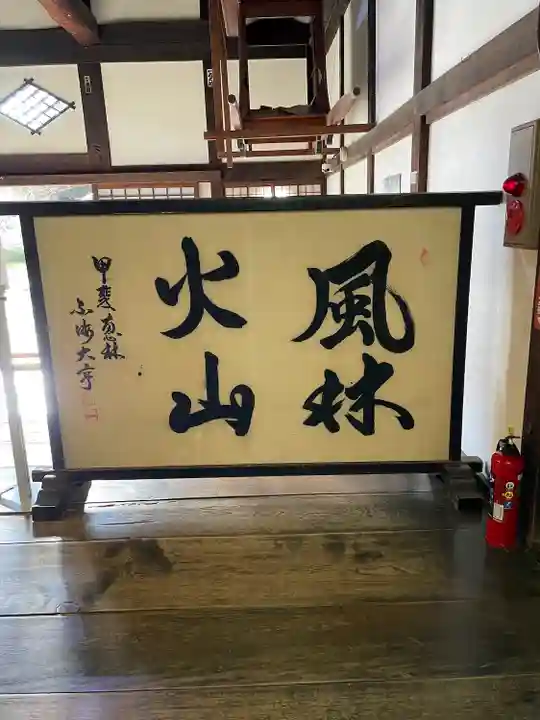 風林
火山
甲斐 恵林